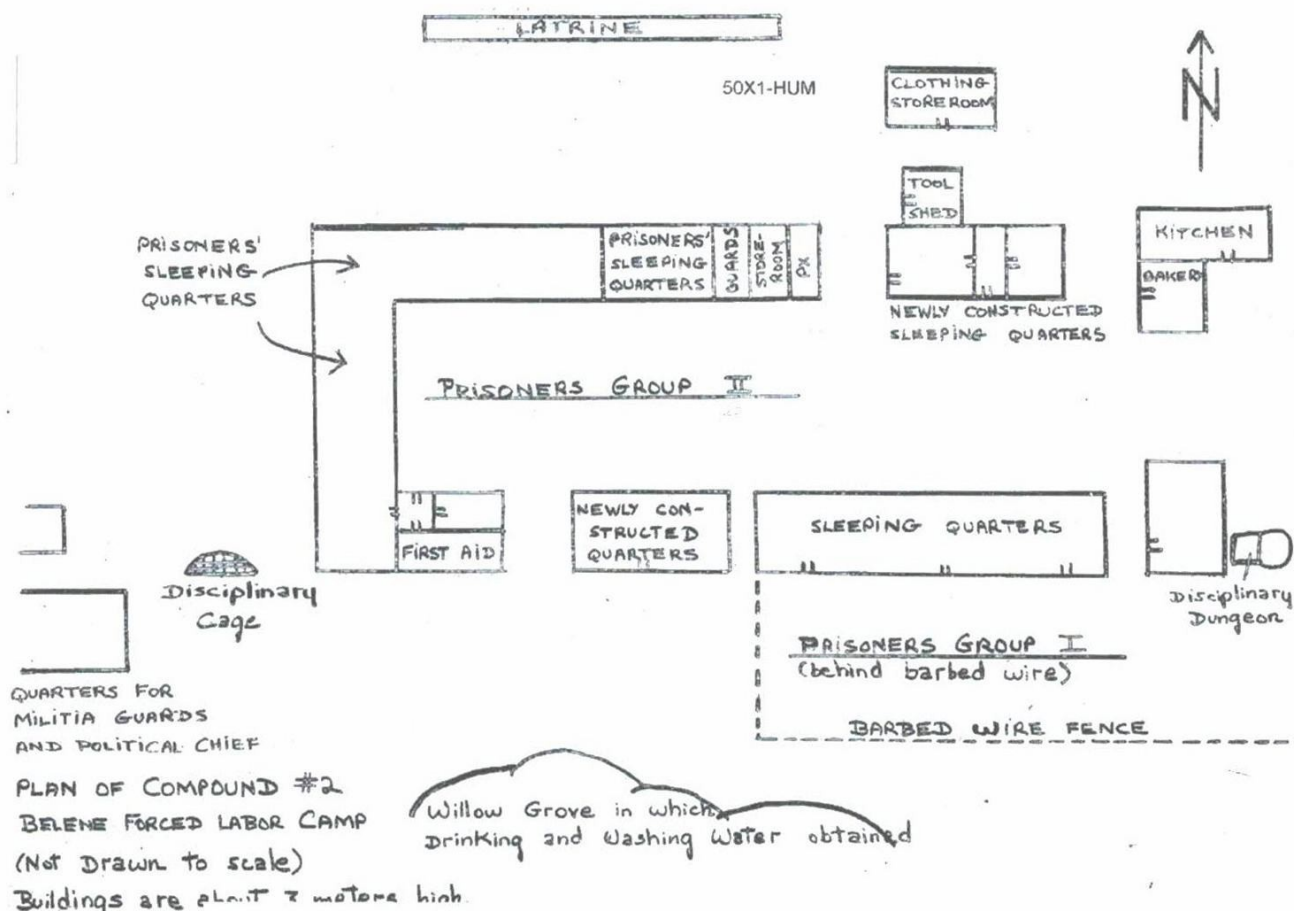 LATRINE
50X1-HUM
CLOTHING
STOREROOM
N
TOOL
SHED
PRISONERS'
SLEEPING
QUARTERS
PRISONERS'
SLEEPING
QUARTERS
GUARDS
STORE-
ROOM
PX
KITCHEN
BAKERY
NEWLY CONSTRUCTED
SLEEPING QUARTERS
PRISONERS GROUP II
FIRST AID
NEWLY CON-
STRUCTED
QUARTERS
SLEEPING QUARTERS
Disciplinary
Cage
Disciplinary
Dungeon
PRISONERS GROUP I
(behind barbed wire)
BARBED WIRE FENCE
QUARTERS FOR
MILITIA GUARDS
AND POLITICAL CHIEF
PLAN OF COMPOUND #2
BELENE FORCED LABOR CAMP
(Not Drawn to scale)
Buildings are about meters high
Willow Grove in which
Drinking and Washing Water obtained